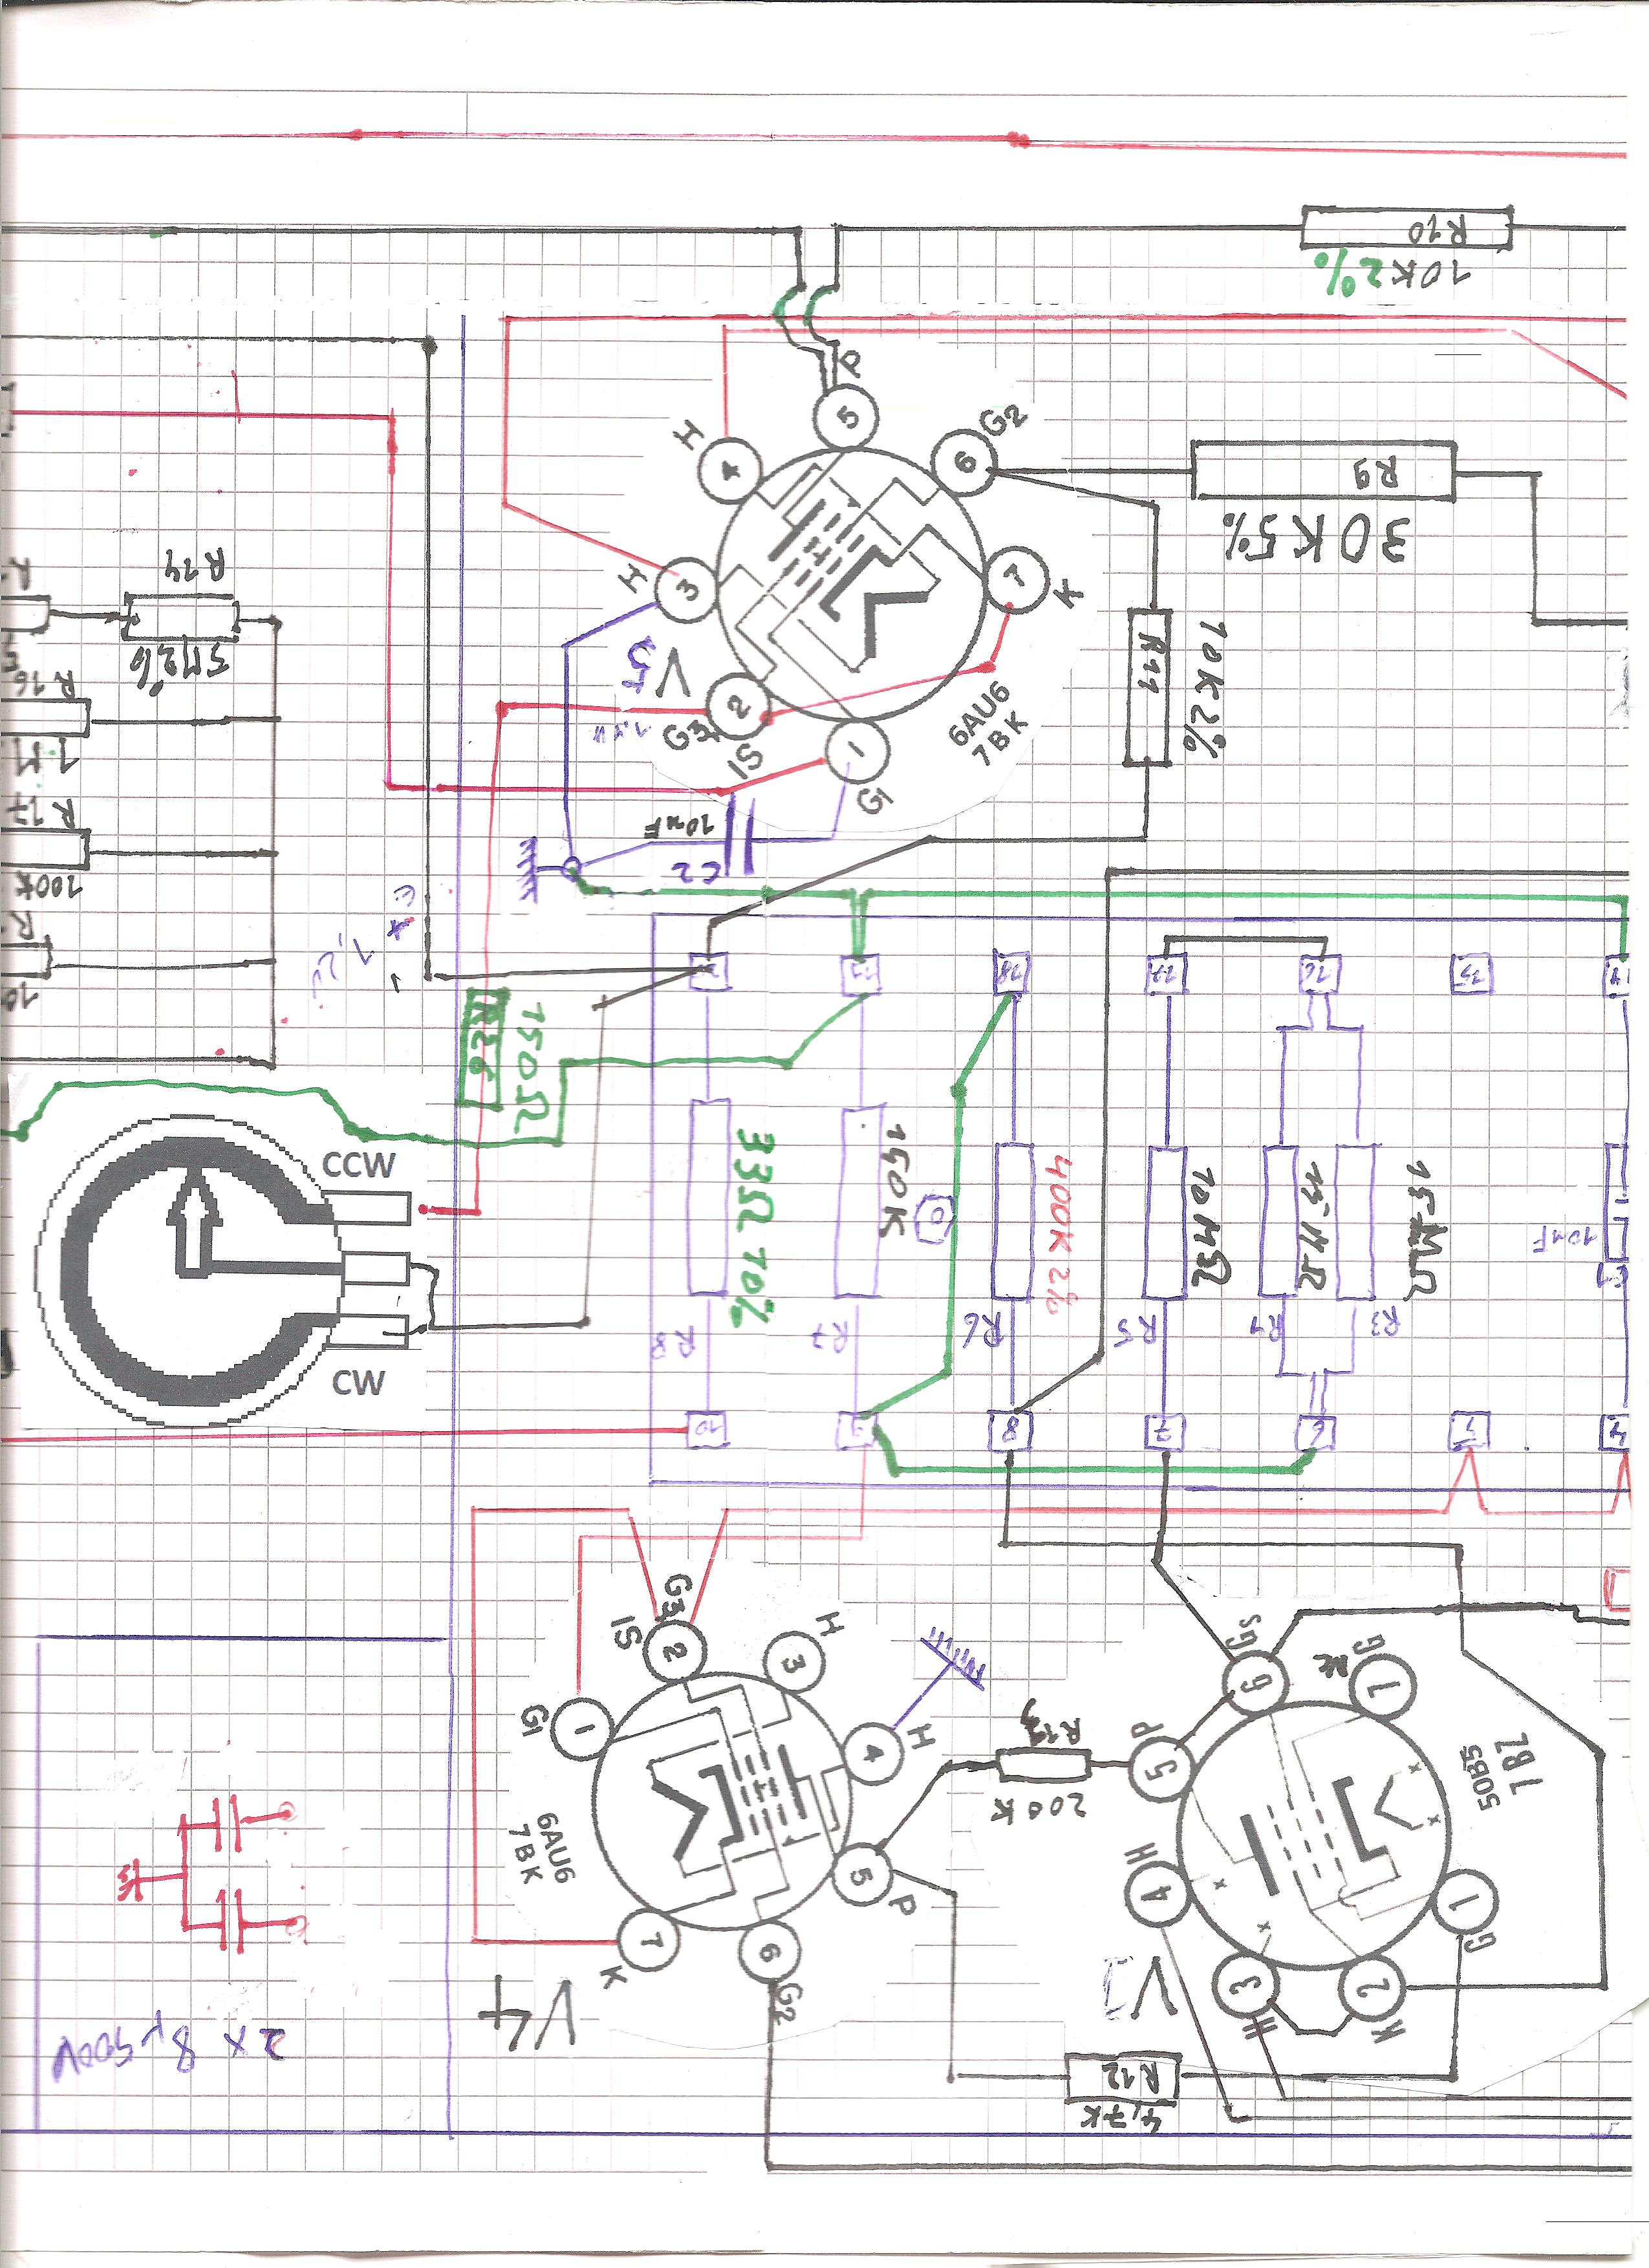 R10
10K 2%
P
5
H
4
6
G2
R9
30K 5%
R14
5M2%
H
3
7
K
V5
R16
1M
2
G3
IS
1
G1
6AU6
7BK
R11
10K 2%
R17
100K
10nF
C2
18
17
16
15
R26
150Ω
CCW
CW
33Ω 10%
150K
400K 2%
10MΩ
15MΩ
15MΩ
10nF
R8
R7
R6
R5
R4
R3
10
9
8
7
6
5
4
G3
IS
2
H
3
G1
1
4
H
6AU6
7BK
5
P
7
K
6
G2
V4
R13
200K
P
5
6
7
G
NC
50B5
7BZ
H
4
1
G
3
H
2
K
R12
4,7K
2x 8µ 500V